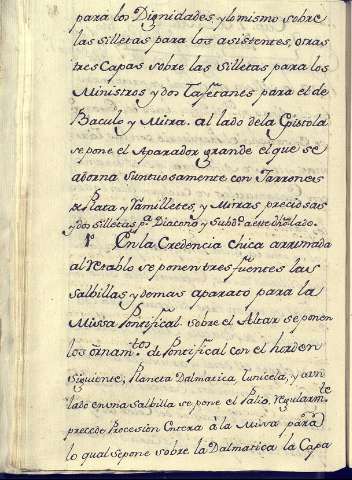 para los Dignidades, y lo mismo sobre
las silletas para los asistentes, otras
tres Capas sobre las silletas para los
Ministros y dos tafetanes para el de
Baculo y Mitra. al lado de la Epistola
se pone el Aparador grande el que se
adorna suntuosamente con Jarrones
Plata y Ramilletes, y Mitras preciosas
y dos silletas pa. Diacono y Subdo. a ese dho lado.
En la Credencia chica arrimada
al retablo se ponen tres fuentes las
salbillas y demas aparato para la
Missa Pontifical. sobre el Altar se ponen
los ornamtos. de Pontifical con el horden
siguiente, Planeta Dalmatica, tunicela, y a un
lado en una salbilla se pone el Palio, regularmte
precede Procesion Entera à la Missa para
lo qual se pone sobre la Dalmatica la Capa